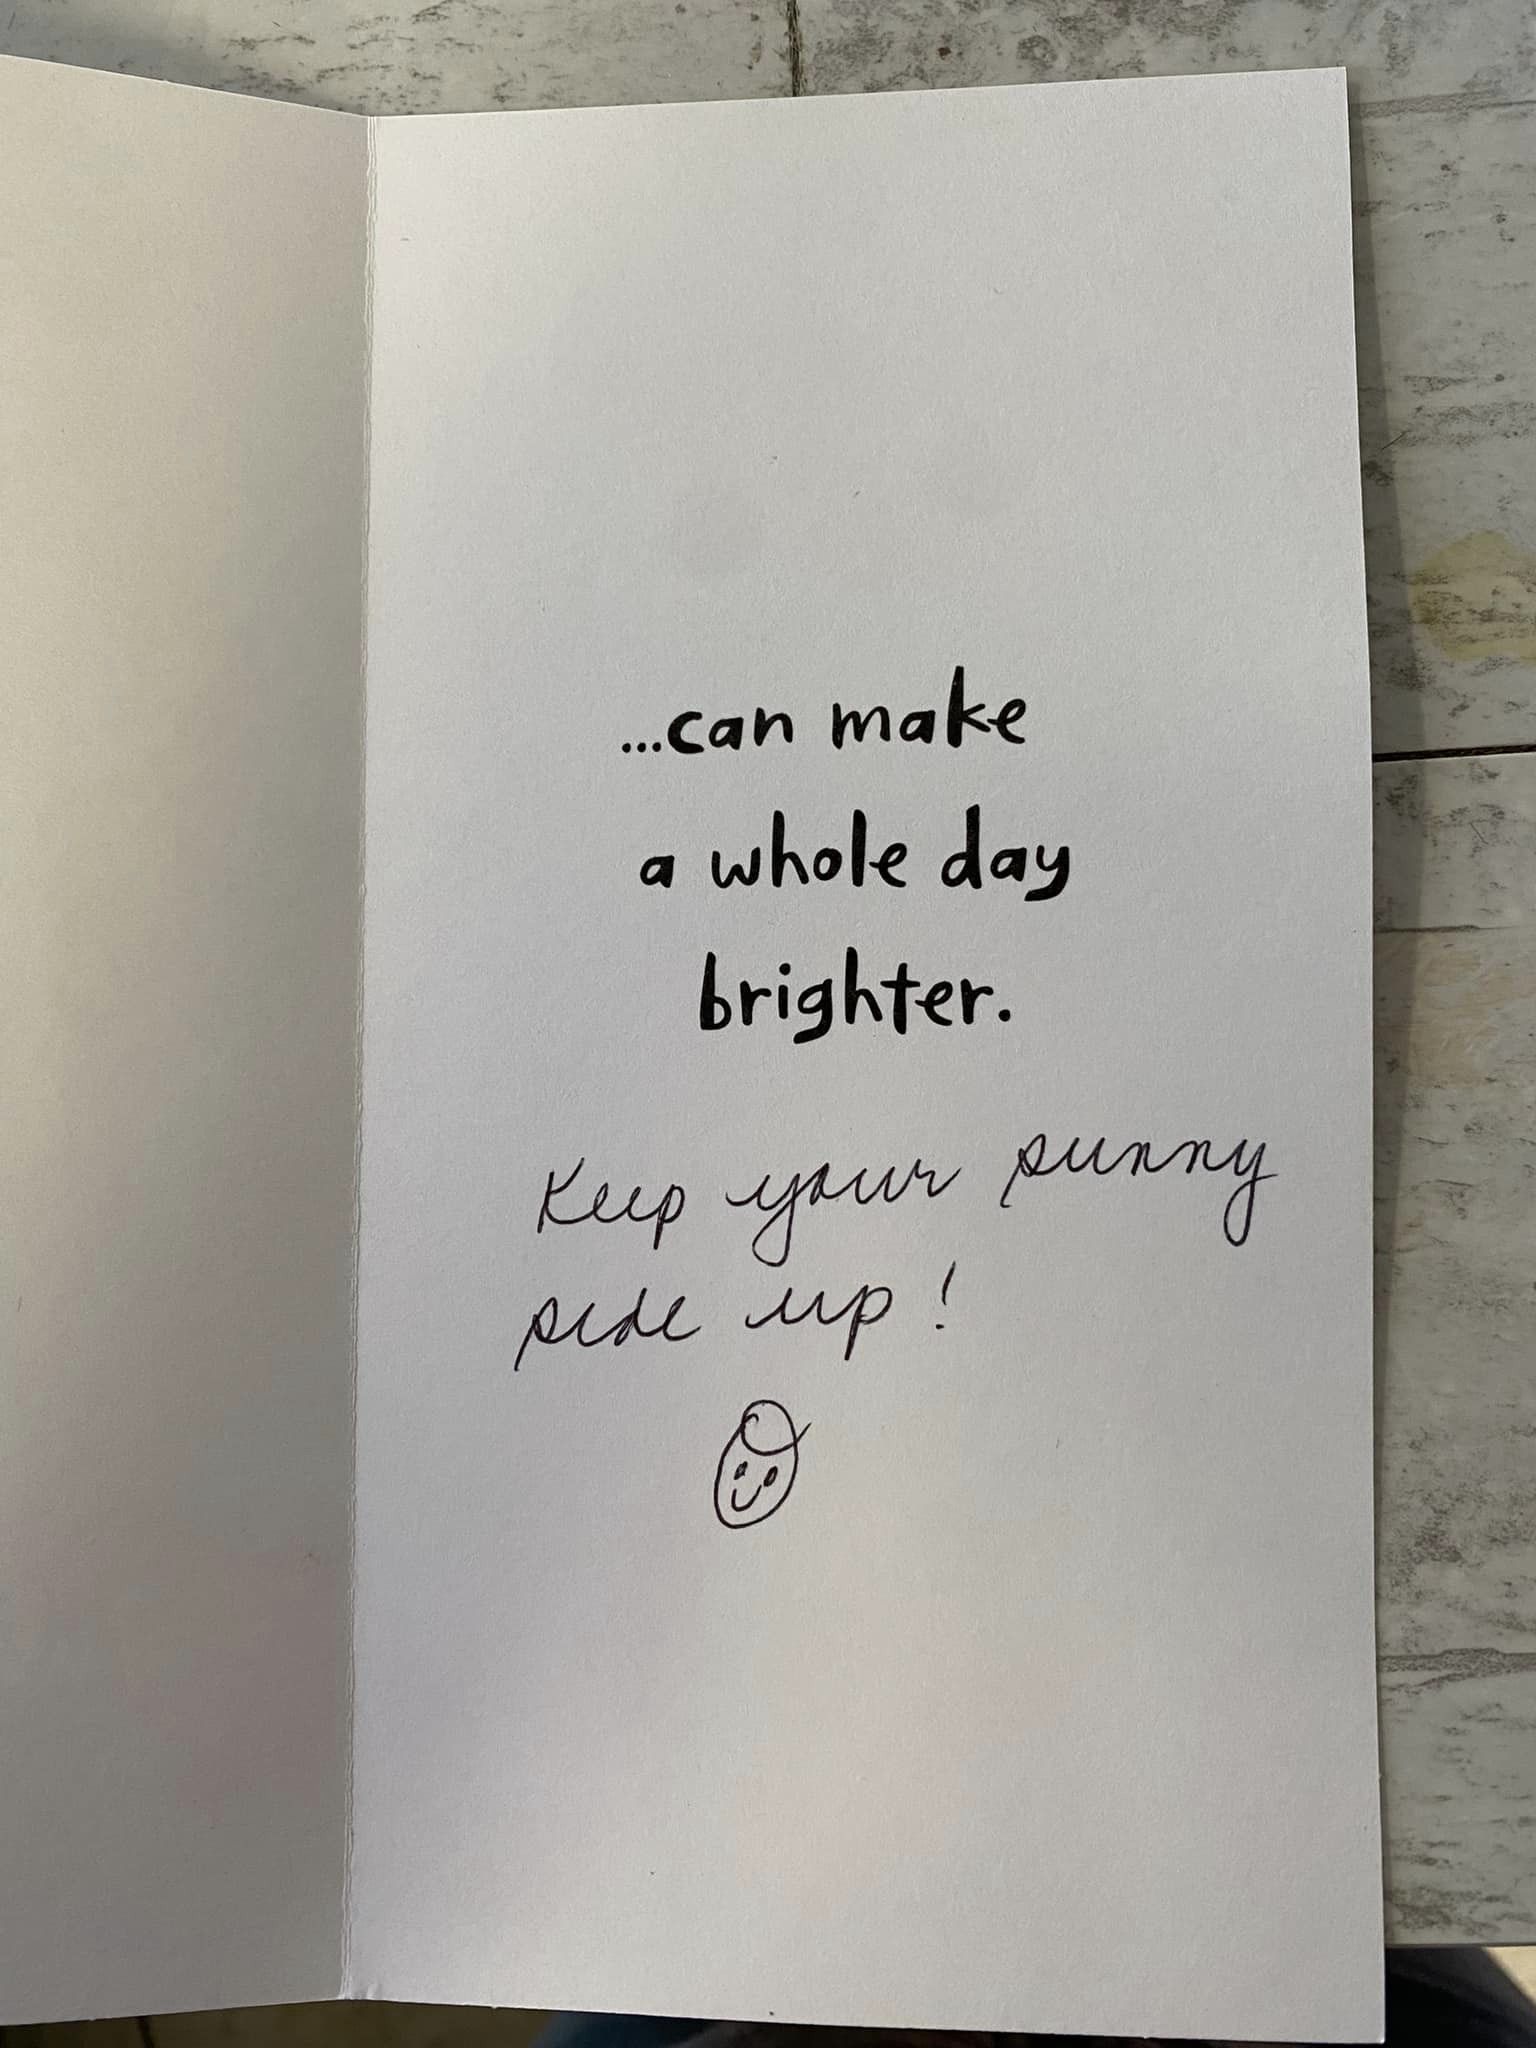 ...can make
a whole day
brighter.
Keep your sunny
side up!